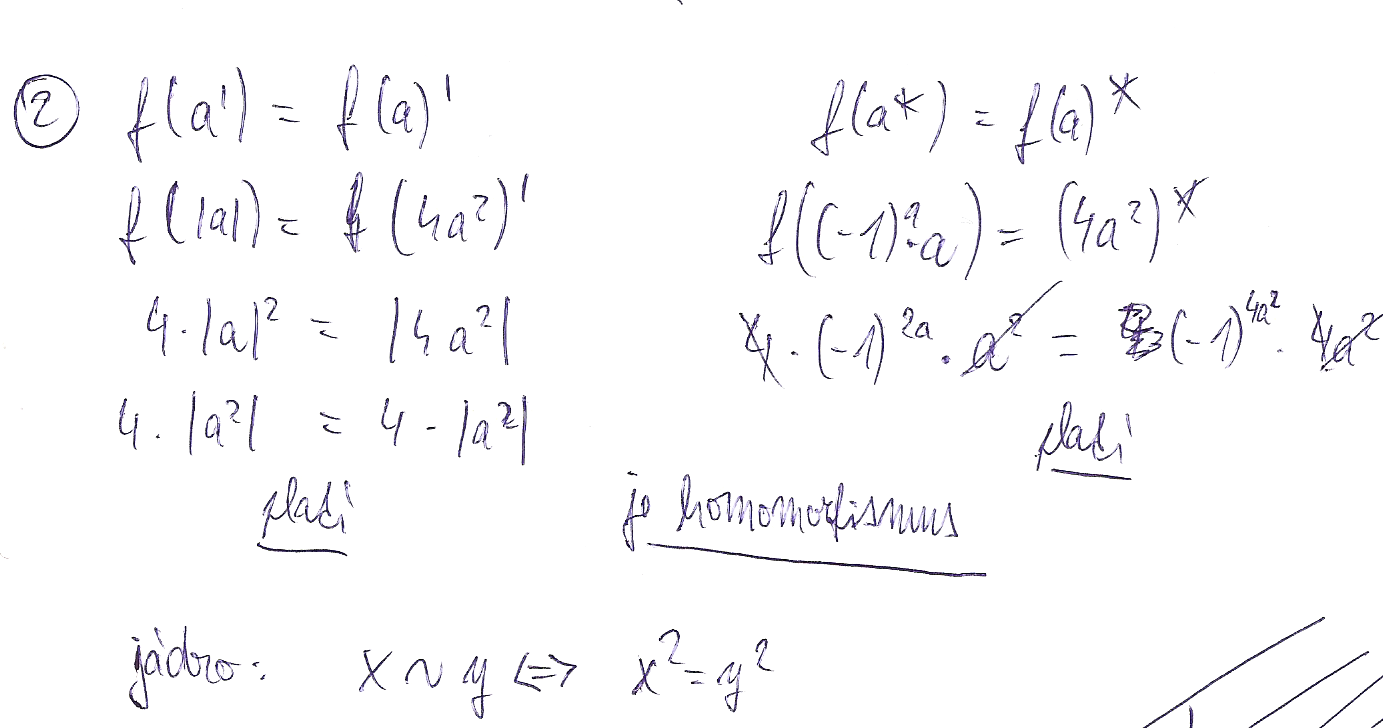 ② f(a') = f(a)'
f(|a|) = f(4a²)'
4·|a|² = |4a²|
4·|a²| = 4·|a²|
platí
f(a*) = f(a)*
f((-1)ᵃ·a) = (4a²)*
4·(-1)²ᵃ·a² = (-1)^4a²·4a²
platí
je homomorfismus
jádro: x ~ y <=> x² = y²